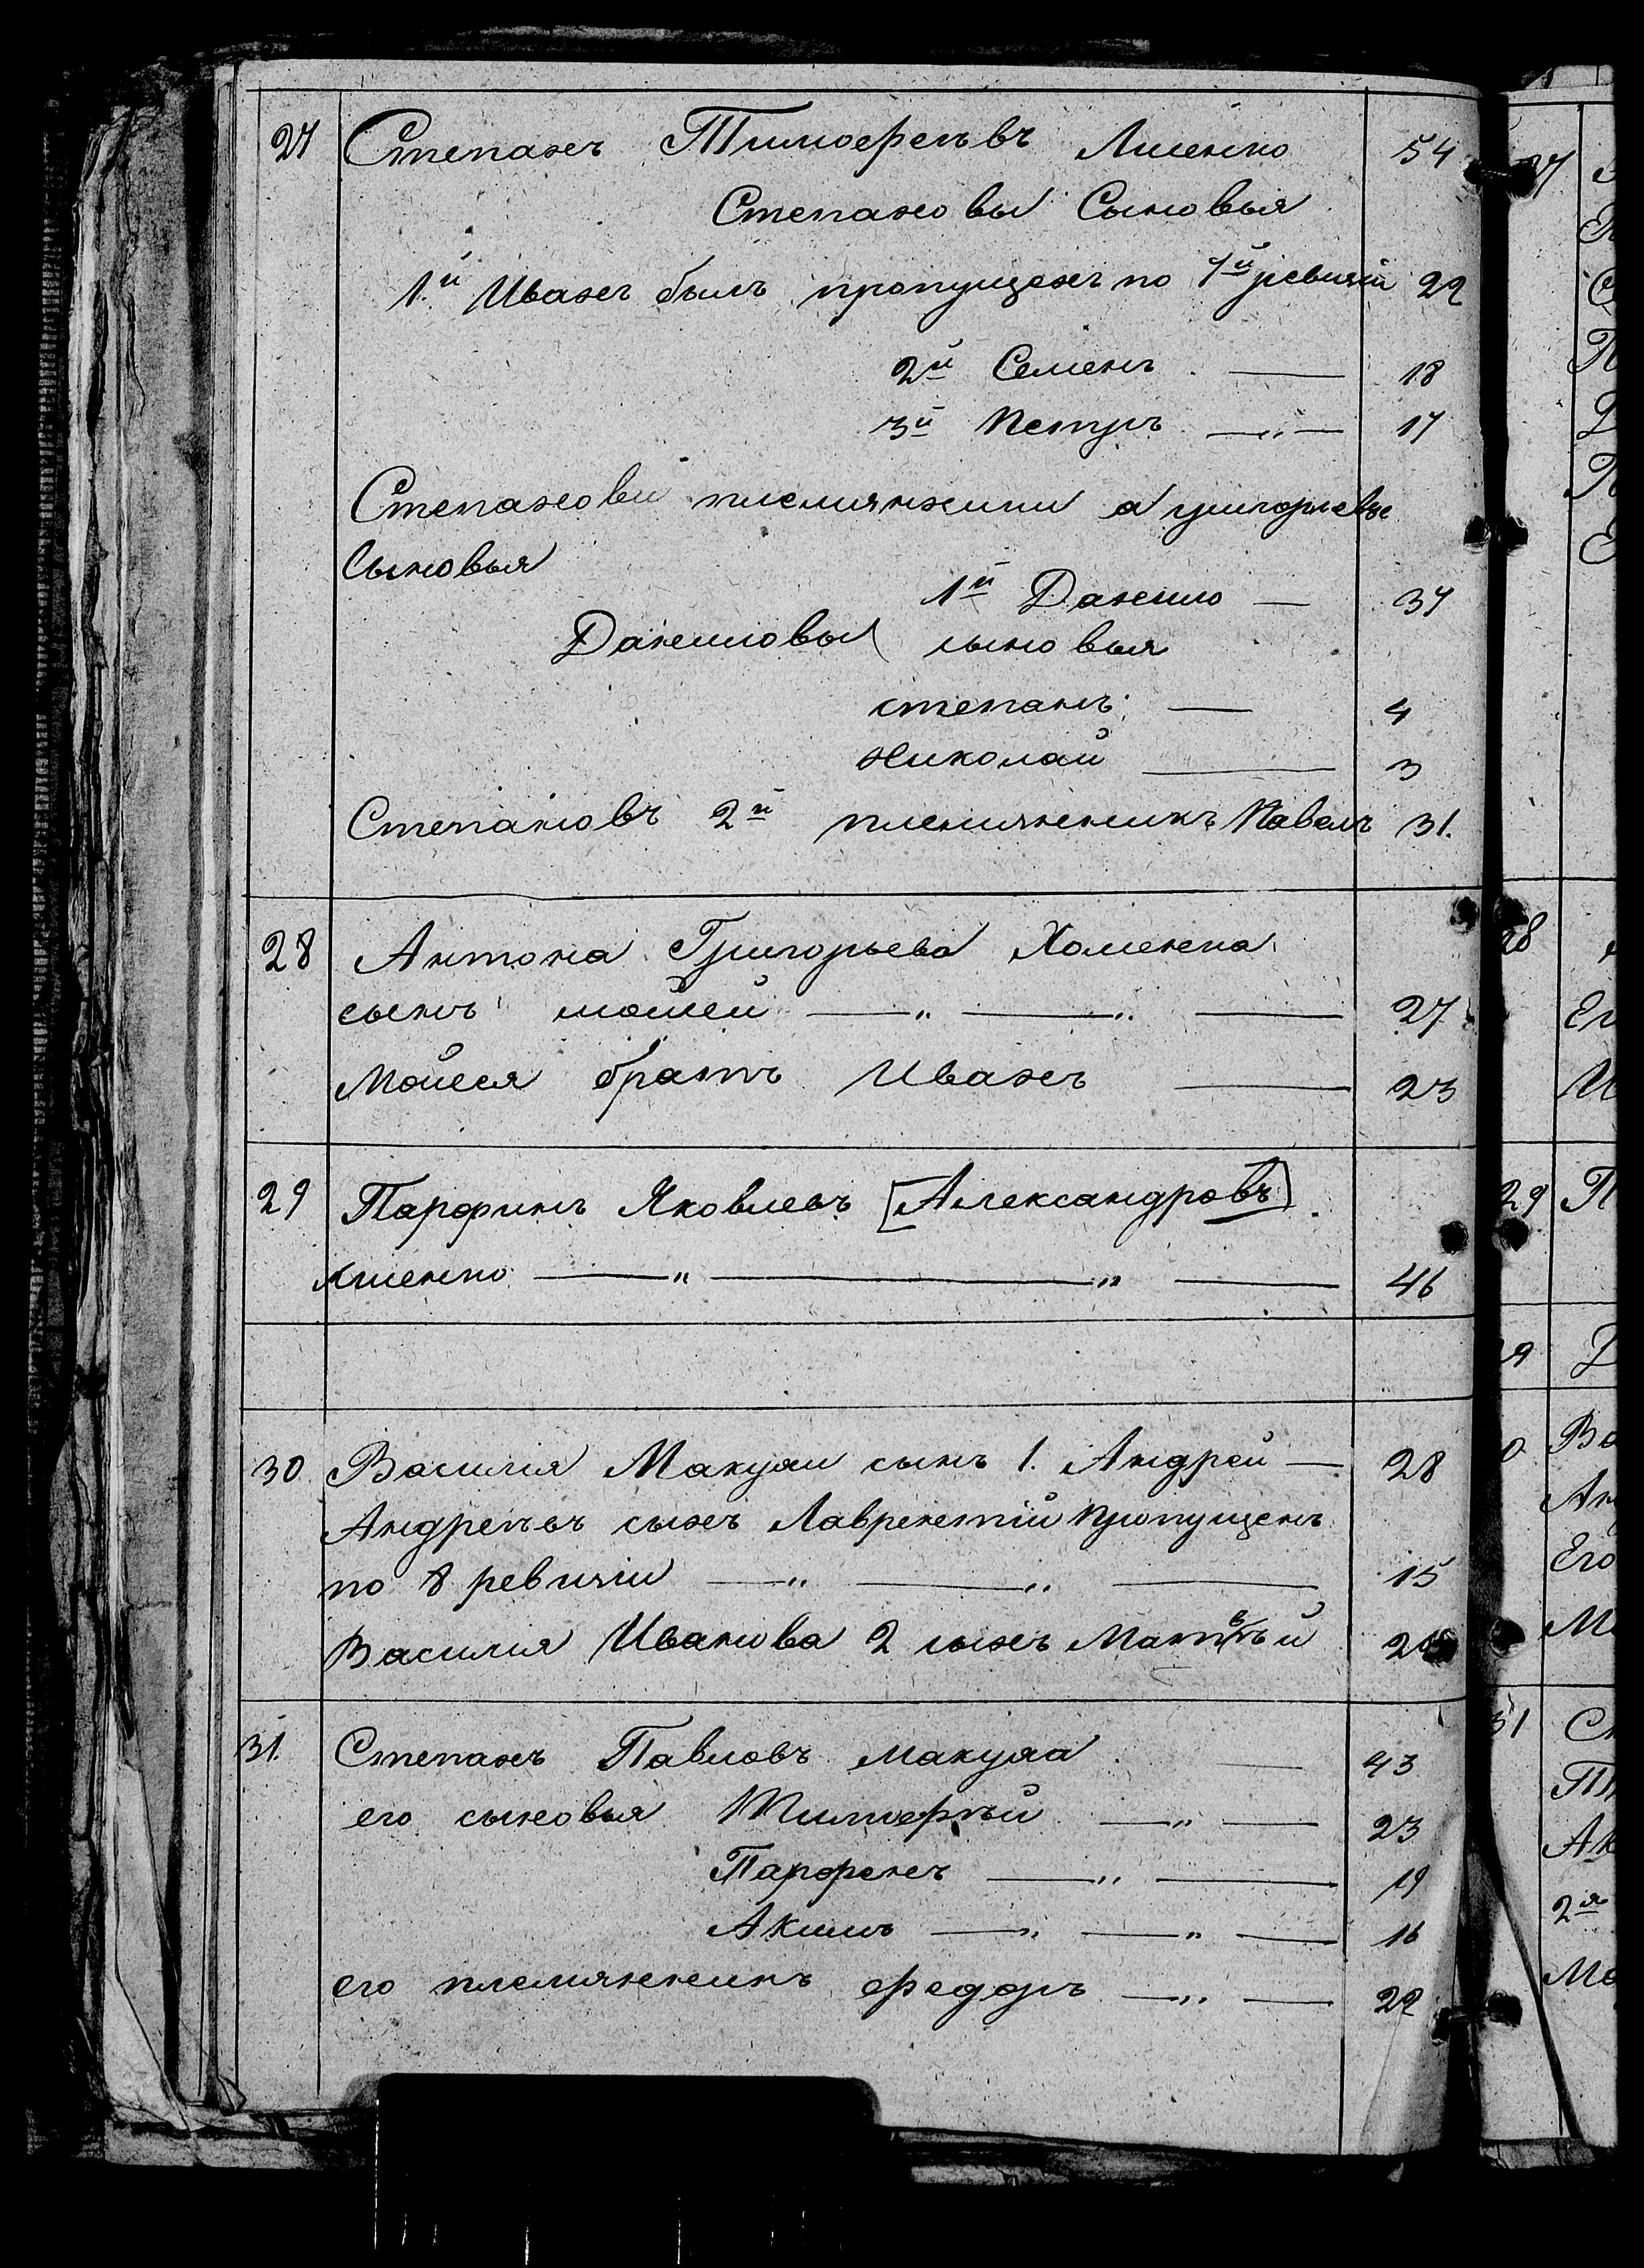 27 Степанъ Тимофеевъ Лиенко 54
Степановы Сыновья
1й Иванъ былъ пропущенъ по 7й ревизіи 22
2й Семенъ — 18
3й Петръ —„— 17
Степановы племянники а григорьевы
Сыновья
1й Данило — 37
Даниловы сыновья
степанъ — 4
Николай — 3
Степановъ 2й племянникъ Павелъ 31.
28 Антона Григорьева Хоменка
сынъ мойсей —„—„— 27
Мойсея братъ Иванъ — 23
29 Парфинъ Яковлевъ [Александровъ]
Лиенко —„—„— 46
30 Василія Макухи сынъ 1. Андрей — 28
Андреевъ сынъ Лаврентій пропущенъ
по 8 ревизіи —„—„— 15
Василия Иванова 2 сынъ Матвѣй
31. Степанъ Павловъ макуха — 43
его сыновья Тимофѣй —„— 23
Парфенъ —„— 19
Акимъ —„—„— 16
его племянникъ федоръ —„— 22
27
28
29
31
Ва
Ан
Его
2я